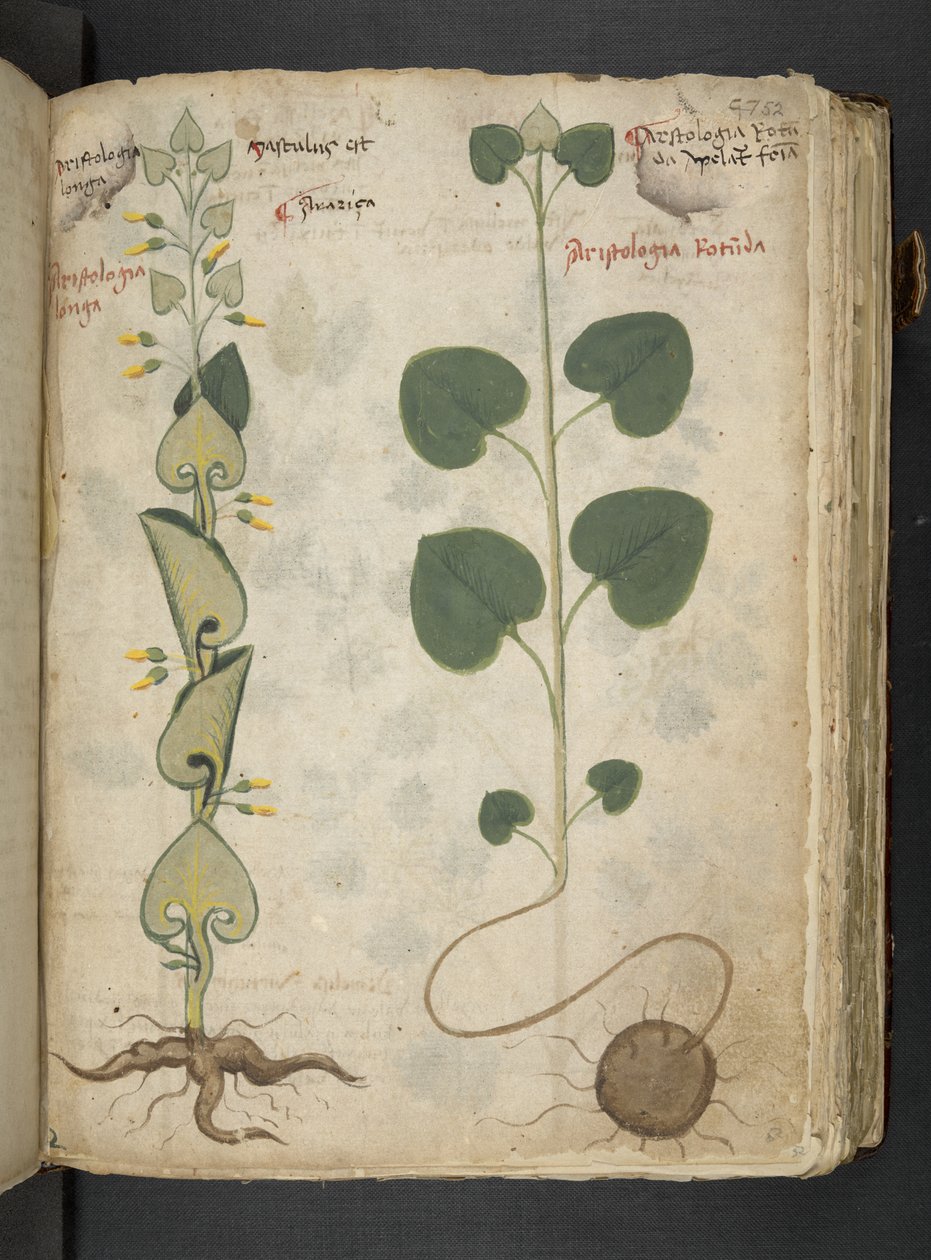 Aristologia
longa
Masculus est
Arariça
Aristologia
longa
52
Arstologia Rotū
da Apelat̄ fēia
Aristologia Rotūda